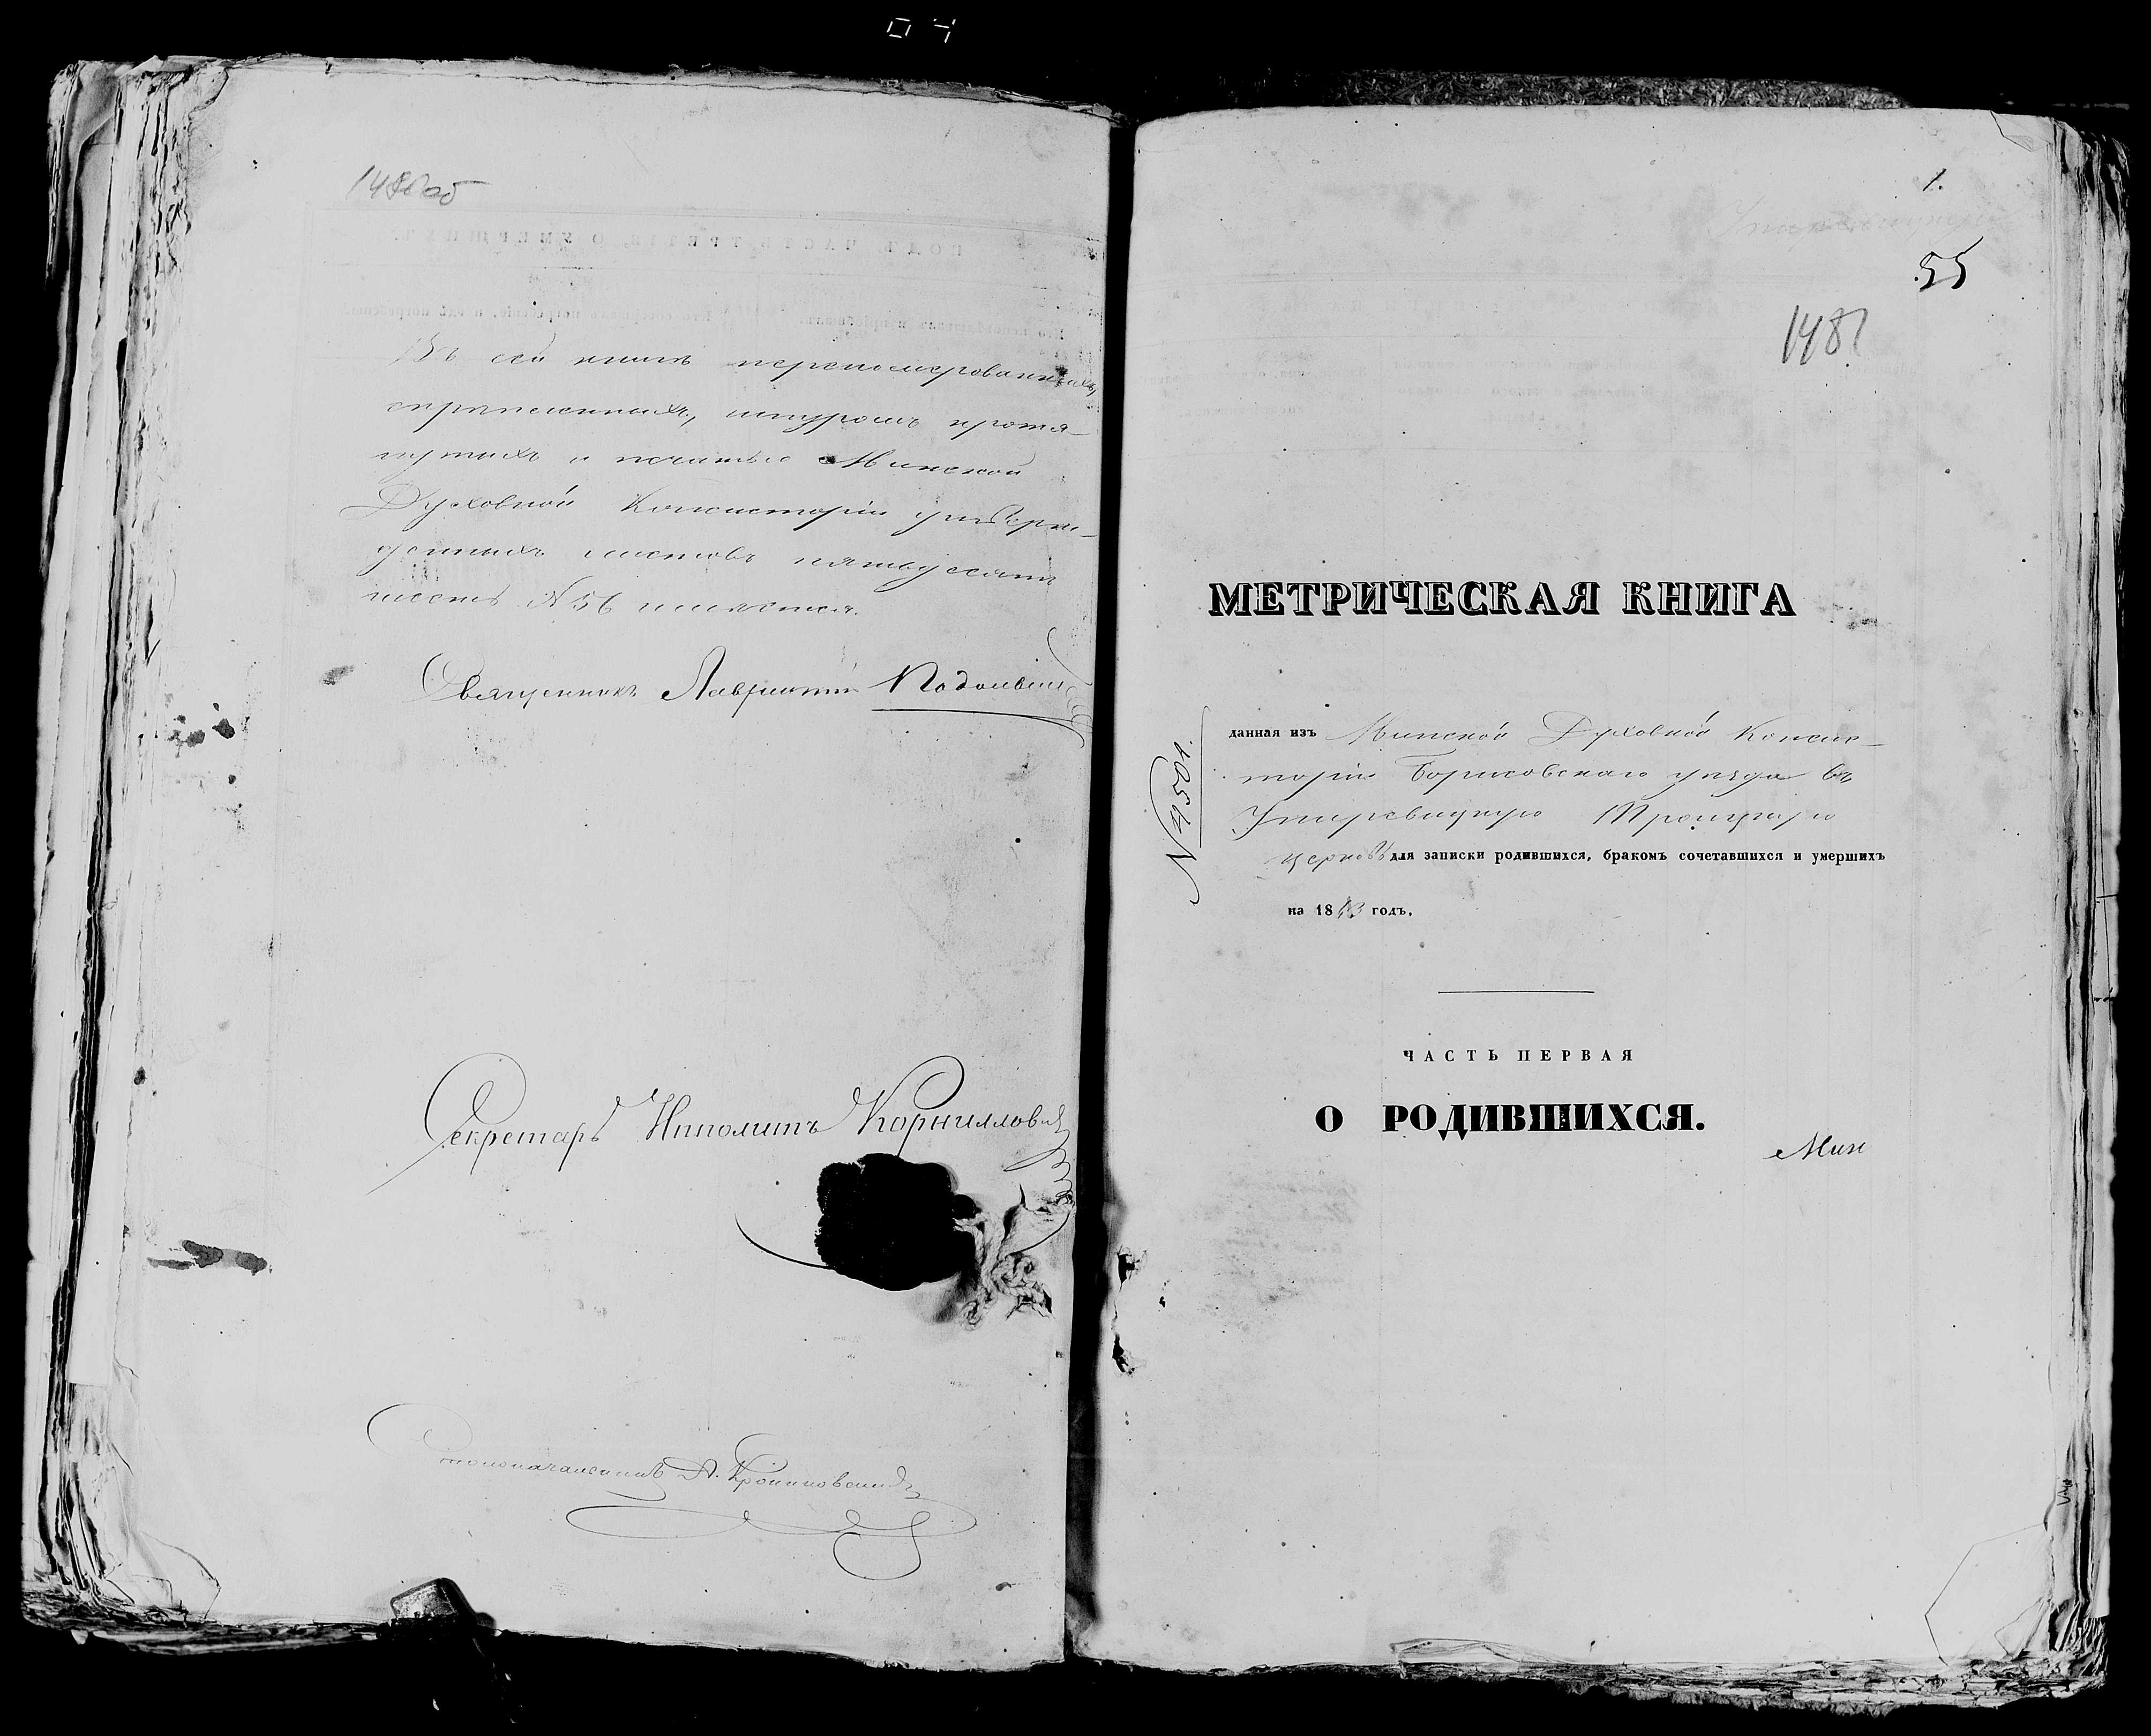 Въ сей книгѣ переномерованныхъ,
скрѣпленныхъ, шнуромъ протя-
нутыхъ и печатью Минской
Духовной Консисторіи утверж-
денныхъ листовъ пятьдесятъ
шесть № 56 имѣется.
Священникъ Лаврентій
Секретарь Ипполитъ Корниллов
Столоначальникъ А.
1.
55
148
МЕТРИЧЕСКАЯ КНИГА
№ 4501.
данная изъ Минской Духовной Консис-
торіи Борисовскаго уѣзда въ
Троицкую
церковь для записки родившихся, бракомъ сочетавшихся и умершихъ
на 18 годъ.
ЧАСТЬ ПЕРВАЯ
О РОДИВШИХСЯ.
Мин